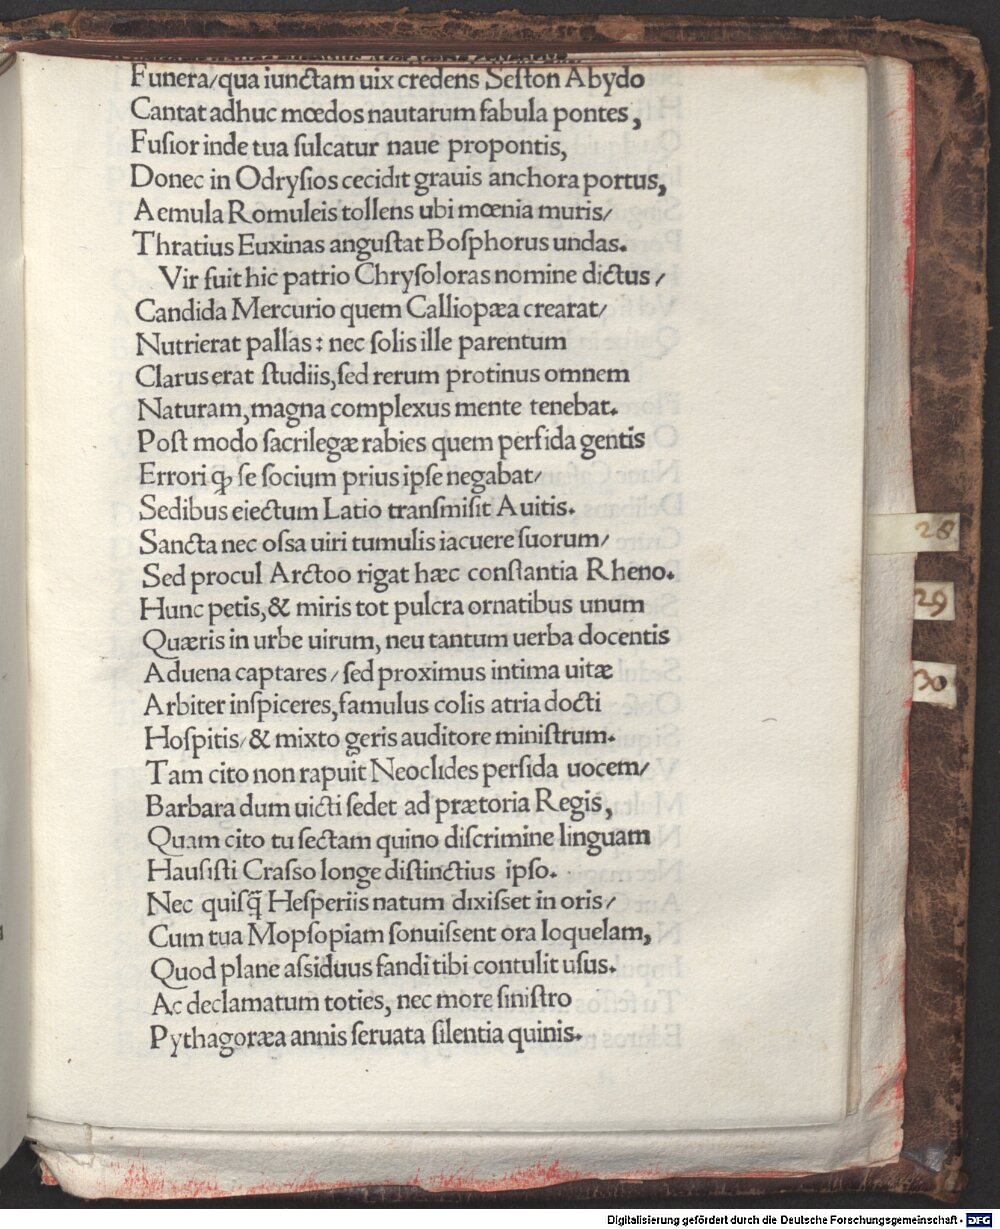 Funera/qua iunctam uix credens Seſton Abydo
Cantat adhuc mœdos nautarum fabula pontes,
Fuſior inde tua ſulcatur naue propontis,
Donec in Odryſios cecidit grauis anchora portus,
Aemula Romuleis tollens ubi mœnia muris/
Thratius Euxinas anguſtat Boſphorus undas.
Vir fuit hic patrio Chryſoloras nomine dictus/
Candida Mercurio quem Calliopæa crearat/
Nutrierat pallas: nec ſolis ille parentum
Clarus erat ſtudiis, ſed rerum protinus omnem
Naturam, magna complexus mente tenebat.
Poſt modo ſacrilegæ rabies quem perfida gentis
Errori ꝙ ſe ſocium prius ipſe negabat/
Sedibus eiectum Latio tranſmiſit Auitis.
Sancta nec oſſa uiri tumulis iacuere ſuorum/
Sed procul Arctoo rigat hæc conſtantia Rheno.
Hunc petis, & miris tot pulcra ornatibus unum
Quæris in urbe uirum, neu tantum uerba docentis
Aduena captares/ſed proximus intima uitæ
Arbiter inſpiceres, famulus colis atria docti
Hoſpitis/& mixto geris auditore miniſtrum.
Tam cito non rapuit Neoclides perſida uocem/
Barbara dum uicti ſedet ad prætoria Regis,
Quam cito tu ſectam quino diſcrimine linguam
Hauſiſti Craſſo longe diſtinctius ipſo.
Nec quiſꝗ̃ Heſperiis natum dixiſſet in oris/
Cum tua Mopſopiam ſonuiſſent ora loquelam,
Quod plane aſſiduus fandi tibi contulit uſus.
Ac declamatum toties, nec more ſiniſtro
Pythagoræa annis ſeruata ſilentia quinis.
28
29
30
Digitalisierung gefördert durch die Deutsche Forschungsgemeinschaft - DFG